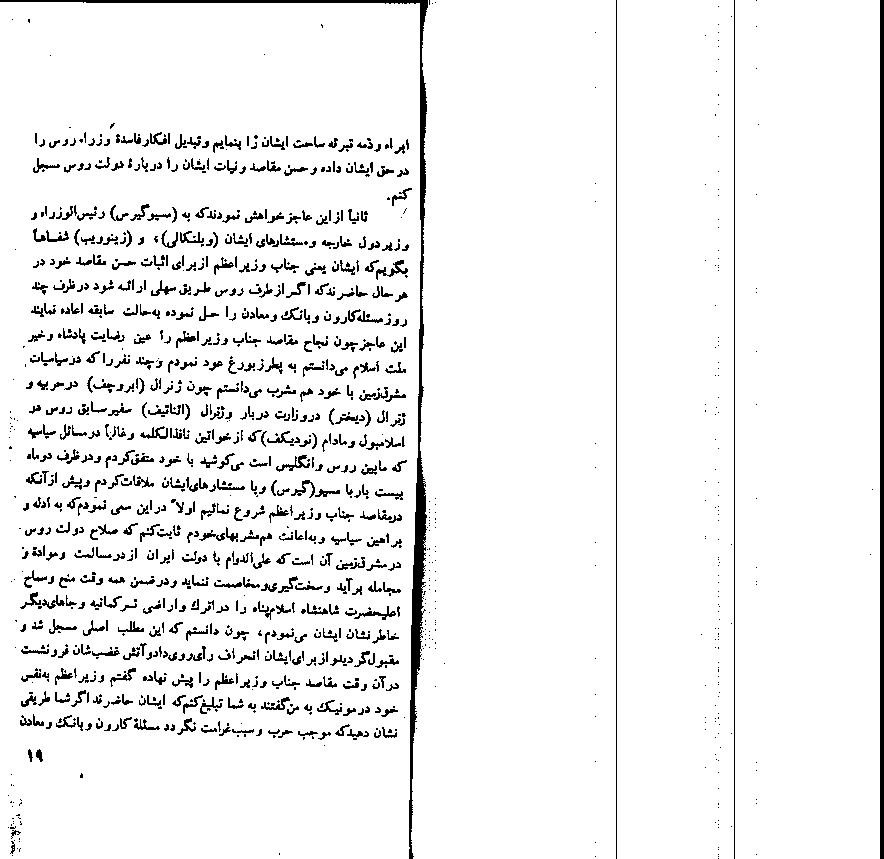 ابراء و ذمه تبرئه ساحت ایشان را بنمایم و تبدیل افکار فاسدهٔ وزراء روس را
در حق ایشان داده و حسن مقاصد و نیات ایشان را دربارهٔ دولت روس مسجل
کنم.
ثانیاً از این عاجز خواهش نمودند که به (مسیوگیرس) رئیس‌الوزراء و
وزیر دول خارجه و مستشارهای ایشان (ویلنکالی)، و (زینوویب) شفاهاً
بگویم که ایشان یعنی جناب وزیر اعظم از برای اثبات حسن مقاصد خود در
هر حال حاضرند که اگر از طرف روس طریق سهلی ارائه شود در ظرف چند
روز مسئله کارون و بانک و معادن را حل نموده به حالت سابقه اعاده نمایند
این عاجز چون نجاح مقاصد جناب وزیر اعظم را عین رضایت پادشاه و خیر
ملت اسلام می‌دانستم به پطرزبورغ عود نمودم و چند نفر را که در سیاسیات
مشرق‌زمین با خود هم مشرب می‌دانستم چون ژنرال (ابروچف) در حربیه و
ژنرال (دیختر) در وزارت دربار و ژنرال (اغناتیف) سفیر سابق روس در
اسلامبول و مادام (نودیکف) که از خواتین نافذالکلمه و غالباً در مسائل سیاسیه
که مابین روس و انگلیس است می‌کوشید با خود متفق کردم و در ظرف دو ماه
بیست بار با مسیو (گیرس) و با مستشارهای ایشان ملاقات کردم و پیش از آنکه
در مقاصد جناب وزیر اعظم شروع نمائیم اولاً در این سعی نمودم که به ادله و
براهین سیاسیه و به اعانت هم‌مشربهای خودم ثابت کنم که صلاح دولت روس
در مشرق‌زمین آن است که علی‌الدوام با دولت ایران از در مسالمت و مواده و
مجامله برآید و سخت‌گیری و مخاصمت ننماید و در ضمن همه وقت منح و سماح
اعلیحضرت شاهنشاه اسلام‌پناه را در اترک و اراضی ترکمانیه و جاهای دیگر
خاطر نشان ایشان می‌نمودم، چون دانستم که این مطلب اصلی مسجل شد و
مقبول گردید و از برای ایشان انحراف رأی روی داد و آتش غضب‌شان فرو نشست
در آن وقت مقاصد جناب وزیر اعظم را پیش نهاده گفتم وزیر اعظم به نفس
خود در مونیک به من گفتند به شما تبلیغ کنم که ایشان حاضرند اگر شما طریقی
نشان دهید که موجب حرب و سبب غرامت نگردد مسئلهٔ کارون و بانک و معادن
۱۹